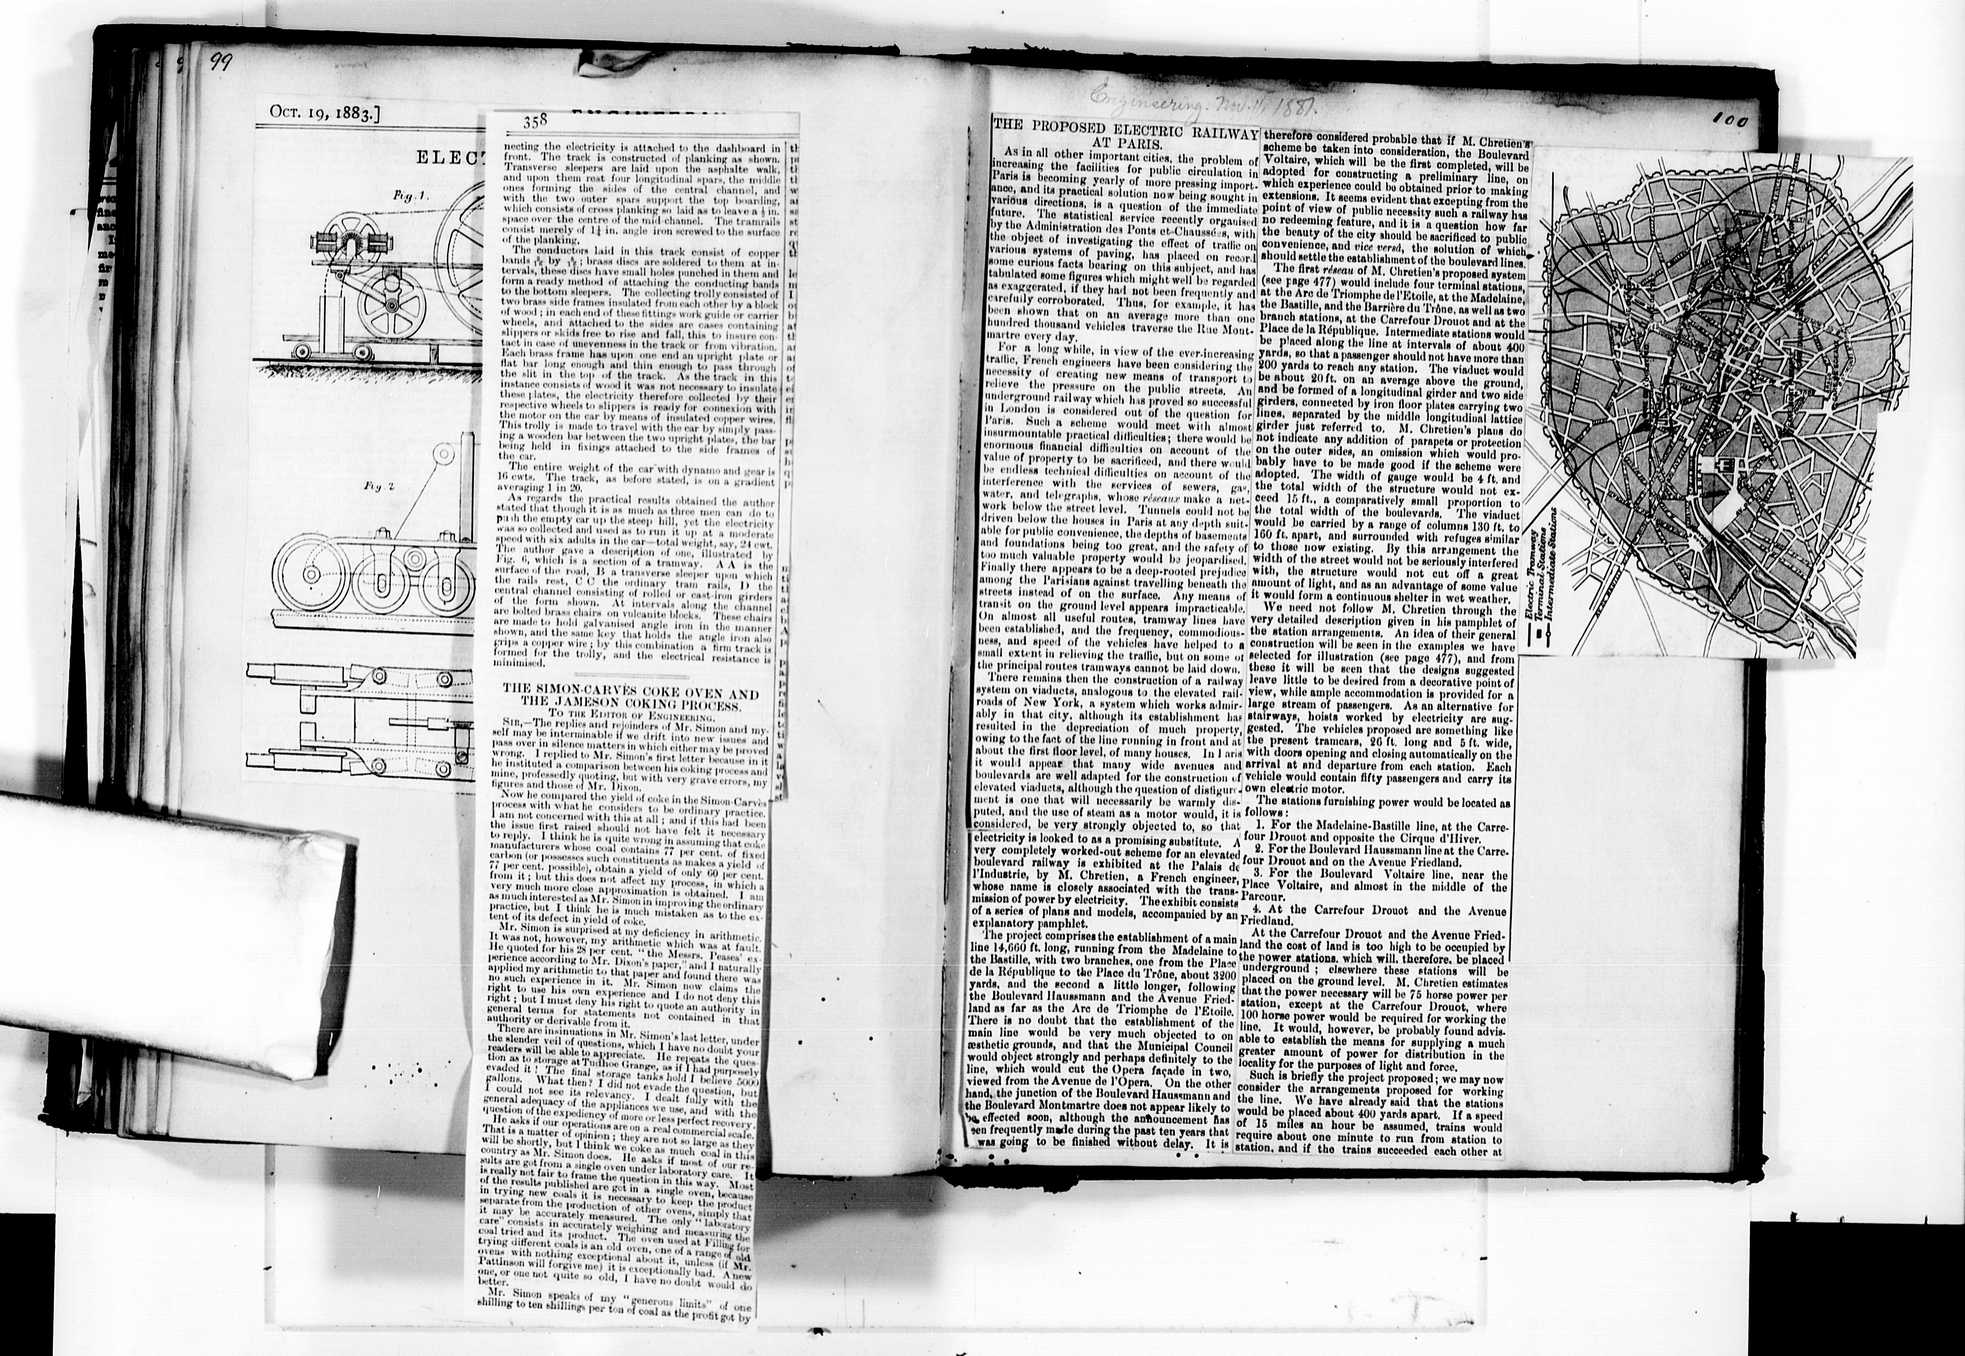 99
OCT. 19, 1883.]
ELEC
Fig. 1.
Fig. 2
358
necting the electricity is attached to the dashboard in
front. The track is constructed of planking as shown.
Transverse sleepers are laid upon the asphalte walk,
and upon them rest four longitudinal spars, the middle
ones forming the sides of the central channel, and
with the two outer spars support the top boarding,
which consists of cross planking so laid as to leave a ½ in.
space over the centre of the mid-channel. The tramrails
consist merely of 1¼ in. angle iron screwed to the surface
of the planking.
The conductors laid in this track consist of copper
bands by ; brass discs are soldered to them at in-
tervals, these discs have small holes punched in them and
form a ready method of attaching the conducting bands
to the bottom sleepers. The collecting trolly consisted of
two brass side frames insulated from each other by a block
of wood; in each end of these fittings work guide or carrier
wheels, and attached to the sides are cases containing
slippers or skids free to rise and fall, this to insure con-
tact in case of unevenness in the track or from vibration.
Each brass frame has upon one end an upright plate or
flat bar long enough and thin enough to pass through
the slit in the top of the track. As the track in this
instance consists of wood it was not necessary to insulate
these plates, the electricity therefore collected by their
respective wheels to slippers is ready for connexion with
the motor on the car by means of insulated copper wires.
This trolly is made to travel with the car by simply pass-
ing a wooden bar between the two upright plates, the bar
being held in fixings attached to the side frames of
the car.
The entire weight of the car with dynamo and gear is
16 cwts. The track, as before stated, is on a gradient
averaging 1 in 20.
As regards the practical results obtained the author
stated that though it is as much as three men can do to
push the empty car up the steep hill, yet the electricity
was so collected and used as to run it up at a moderate
speed with six adults in the car—total weight, say, 24 cwt.
The author gave a description of one, illustrated by
Fig. 6, which is a section of a tramway. A A is the
surface of the road, B a transverse sleeper upon which
the rails rest, C C the ordinary tram rails, D the
central channel consisting of rolled or cast-iron girders
of the form shown. At intervals along the channel
are bolted brass chairs on vulcanite blocks. These chairs
are made to hold galvanised angle iron in the manner
shown, and the same key that holds the angle iron also
grips a copper wire; by this combination a firm track is
formed for the trolly, and the electrical resistance is
minimised.
THE SIMON-CARVÉS COKE OVEN AND
THE JAMESON COKING PROCESS.
TO THE EDITOR OF ENGINEERING.
SIR,—The replies and rejoinders of Mr. Simon and my-
self may be interminable if we drift into new issues and
pass over in silence matters in which either may be proved
wrong. I replied to Mr. Simon's first letter because in it
he instituted a comparison between his coking process and
mine, professedly quoting, but with very grave errors, my
figures and those of Mr. Dixon.
Now he compared the yield of coke in the Simon-Carvés
process with what he considers to be ordinary practice.
I am not concerned with this at all; and if this had been
the issue first raised should not have felt it necessary
to reply. I think he is quite wrong in assuming that coke
manufacturers whose coal contains 77 per cent. of fixed
carbon (or possesses such constituents as makes a yield of
77 per cent. possible), obtain a yield of only 60 per cent.
from it; but this does not affect my process, in which a
very much more close approximation is obtained. I am
as much interested as Mr. Simon in improving the ordinary
practice, but I think he is much mistaken as to the ex-
tent of its defect in yield of coke.
Mr. Simon is surprised at my deficiency in arithmetic.
It was not, however, my arithmetic which was at fault.
He quoted for his 28 per cent. "the Messrs. Peases' ex-
perience according to Mr. Dixon's paper," and I naturally
applied my arithmetic to that paper and found there was
no such experience in it. Mr. Simon now claims the
right to use his own experience and I do not deny this
right; but I must deny his right to quote an authority in
general terms for statements not contained in that
authority or derivable from it.
There are insinuations in Mr. Simon's last letter, under
the slender veil of questions, which I have no doubt your
readers will be able to appreciate. He repeats the ques-
tion as to storage at Tudhoe Grange, as if I had purposely
evaded it! The final storage tanks hold I believe 5000
gallons. What then? I did not evade the question, but
I could not see its relevancy. I dealt fully with the
general adequacy of the appliances we use, and with the
question of the expediency of more or less perfect recovery.
He asks if our operations are on a real commercial scale.
That is a matter of opinion; they are not so large as they
will be shortly, but I think we coke as much coal in this
country as Mr. Simon does. He asks if most of our re-
sults are got from a single oven under laboratory care. It
is really not fair to frame the question in this way. Most
of the results published are got in a single oven, because
in trying new coals it is necessary to keep the product
separate from the production of other ovens, simply that
it may be accurately measured. The only "laboratory
care" consists in accurately weighing and measuring the
coal tried and its product. The oven used at Felling for
trying different coals is an old oven, one of a range of old
ovens with nothing exceptional about it, unless (if Mr.
Pattinson will forgive me) it is exceptionally bad. A new
one, or one not quite so old, I have no doubt would do
better.
Mr. Simon speaks of my "generous limits" of one
shilling to ten shillings per ton of coal as the profit got by
Engineering. Nov. 11, 1881.
100
THE PROPOSED ELECTRIC RAILWAY
AT PARIS.
As in all other important cities, the problem of
increasing the facilities for public circulation in
Paris is becoming yearly of more pressing import-
ance, and its practical solution now being sought in
various directions, is a question of the immediate
future. The statistical service recently organised
by the Administration des Ponts et-Chaussées, with
the object of investigating the effect of traffic on
various systems of paving, has placed on record
some curious facts bearing on this subject, and has
tabulated some figures which might well be regarded
as exaggerated, if they had not been frequently and
carefully corroborated. Thus, for example, it has
been shown that on an average more than one
hundred thousand vehicles traverse the Rue Mont-
martre every day.
For a long while, in view of the ever-increasing
traffic, French engineers have been considering the
necessity of creating new means of transport to
relieve the pressure on the public streets. An
underground railway which has proved so successful
in London is considered out of the question for
Paris. Such a scheme would meet with almost
insurmountable practical difficulties; there would be
enormous financial difficulties on account of the
value of property to be sacrificed, and there would
be endless technical difficulties on account of the
interference with the services of sewers, gas,
water, and telegraphs, whose réseaux make a net-
work below the street level. Tunnels could not be
driven below the houses in Paris at any depth suit-
able for public convenience, the depths of basements
and foundations being too great, and the safety of
too much valuable property would be jeopardised.
Finally there appears to be a deep-rooted prejudice
among the Parisians against travelling beneath the
streets instead of on the surface. Any means of
transit on the ground level appears impracticable.
On almost all useful routes, tramway lines have
been established, and the frequency, commodious-
ness, and speed of the vehicles have helped to a
small extent in relieving the traffic, but on some of
the principal routes tramways cannot be laid down.
There remains then the construction of a railway
system on viaducts, analogous to the elevated rail-
roads of New York, a system which works admir-
ably in that city, although its establishment has
resulted in the depreciation of much property,
owing to the fact of the line running in front and at
about the first floor level, of many houses. In Paris
it would appear that many wide avenues and
boulevards are well adapted for the construction of
elevated viaducts, although the question of disfigure-
ment is one that will necessarily be warmly dis-
puted, and the use of steam as a motor would, it is
considered, be very strongly objected to, so that
electricity is looked to as a promising substitute. A
very completely worked-out scheme for an elevated
boulevard railway is exhibited at the Palais de
l'Industrie, by M. Chretien, a French engineer,
whose name is closely associated with the trans-
mission of power by electricity. The exhibit consists
of a series of plans and models, accompanied by an
explanatory pamphlet.
The project comprises the establishment of a main
line 14,660 ft. long, running from the Madelaine to
the Bastille, with two branches, one from the Place
de la République to the Place du Trône, about 3200
yards, and the second a little longer, following
the Boulevard Haussmann and the Avenue Fried-
land as far as the Arc de Triomphe de l'Etoile.
There is no doubt that the establishment of the
main line would be very much objected to on
æsthetic grounds, and that the Municipal Council
would object strongly and perhaps definitely to the
line, which would cut the Opera façade in two,
viewed from the Avenue de l'Opera. On the other
hand, the junction of the Boulevard Haussmann and
the Boulevard Montmartre does not appear likely to
be effected soon, although the announcement has
een frequently made during the past ten years that
was going to be finished without delay. It is
therefore considered probable that if M. Chretien's
scheme be taken into consideration, the Boulevard
Voltaire, which will be the first completed, will be
adopted for constructing a preliminary line, on
which experience could be obtained prior to making
extensions. It seems evident that excepting from the
point of view of public necessity such a railway has
no redeeming feature, and it is a question how far
the beauty of the city should be sacrificed to public
convenience, and vice versâ, the solution of which
should settle the establishment of the boulevard lines.
The first réseau of M. Chretien's proposed system
(see page 477) would include four terminal stations,
at the Arc de Triomphe de l'Etoile, at the Madelaine,
the Bastille, and the Barrière du Trône, as well as two
branch stations, at the Carrefour Drouot and at the
Place de la République. Intermediate stations would
be placed along the line at intervals of about 400
yards, so that a passenger should not have more than
200 yards to reach any station. The viaduct would
be about 20 ft. on an average above the ground,
and be formed of a longitudinal girder and two side
girders, connected by iron floor plates carrying two
lines, separated by the middle longitudinal lattice
girder just referred to. M. Chretien's plans do
not indicate any addition of parapets or protection
on the outer sides, an omission which would pro-
bably have to be made good if the scheme were
adopted. The width of gauge would be 4 ft. and
the total width of the structure would not ex-
ceed 15 ft., a comparatively small proportion to
the total width of the boulevards. The viaduct
would be carried by a range of columns 130 ft. to
160 ft. apart, and surrounded with refuges similar
to those now existing. By this arrangement the
width of the street would not be seriously interfered
with, the structure would not cut off a great
amount of light, and as an advantage of some value
it would form a continuous shelter in wet weather.
We need not follow M. Chretien through the
very detailed description given in his pamphlet of
the station arrangements. An idea of their general
construction will be seen in the examples we have
selected for illustration (see page 477), and from
these it will be seen that the designs suggested
leave little to be desired from a decorative point of
view, while ample accommodation is provided for a
large stream of passengers. As an alternative for
stairways, hoists worked by electricity are sug-
gested. The vehicles proposed are something like
the present tramcars, 26 ft. long and 5 ft. wide,
with doors opening and closing automatically on the
arrival at and departure from each station. Each
vehicle would contain fifty passengers and carry its
own electric motor.
The stations furnishing power would be located as
follows:
1. For the Madelaine-Bastille line, at the Carre-
four Drouot and opposite the Cirque d'Hiver.
2. For the Boulevard Haussmann line at the Carre-
four Drouot and on the Avenue Friedland.
3. For the Boulevard Voltaire line, near the
Place Voltaire, and almost in the middle of the
Parcour.
4. At the Carrefour Drouot and the Avenue
Friedland.
At the Carrefour Drouot and the Avenue Fried-
land the cost of land is too high to be occupied by
the power stations, which will, therefore, be placed
underground; elsewhere these stations will be
placed on the ground level. M. Chretien estimates
that the power necessary will be 75 horse power per
station, except at the Carrefour Drouot, where
100 horse power would be required for working the
line. It would, however, be probably found advis-
able to establish the means for supplying a much
greater amount of power for distribution in the
locality for the purposes of light and force.
Such is briefly the project proposed; we may now
consider the arrangements proposed for working
the line. We have already said that the stations
would be placed about 400 yards apart. If a speed
of 15 miles an hour be assumed, trains would
require about one minute to run from station to
station, and if the trains succeeded each other at
Electric Tramway
Terminal Stations
Intermediate Stations